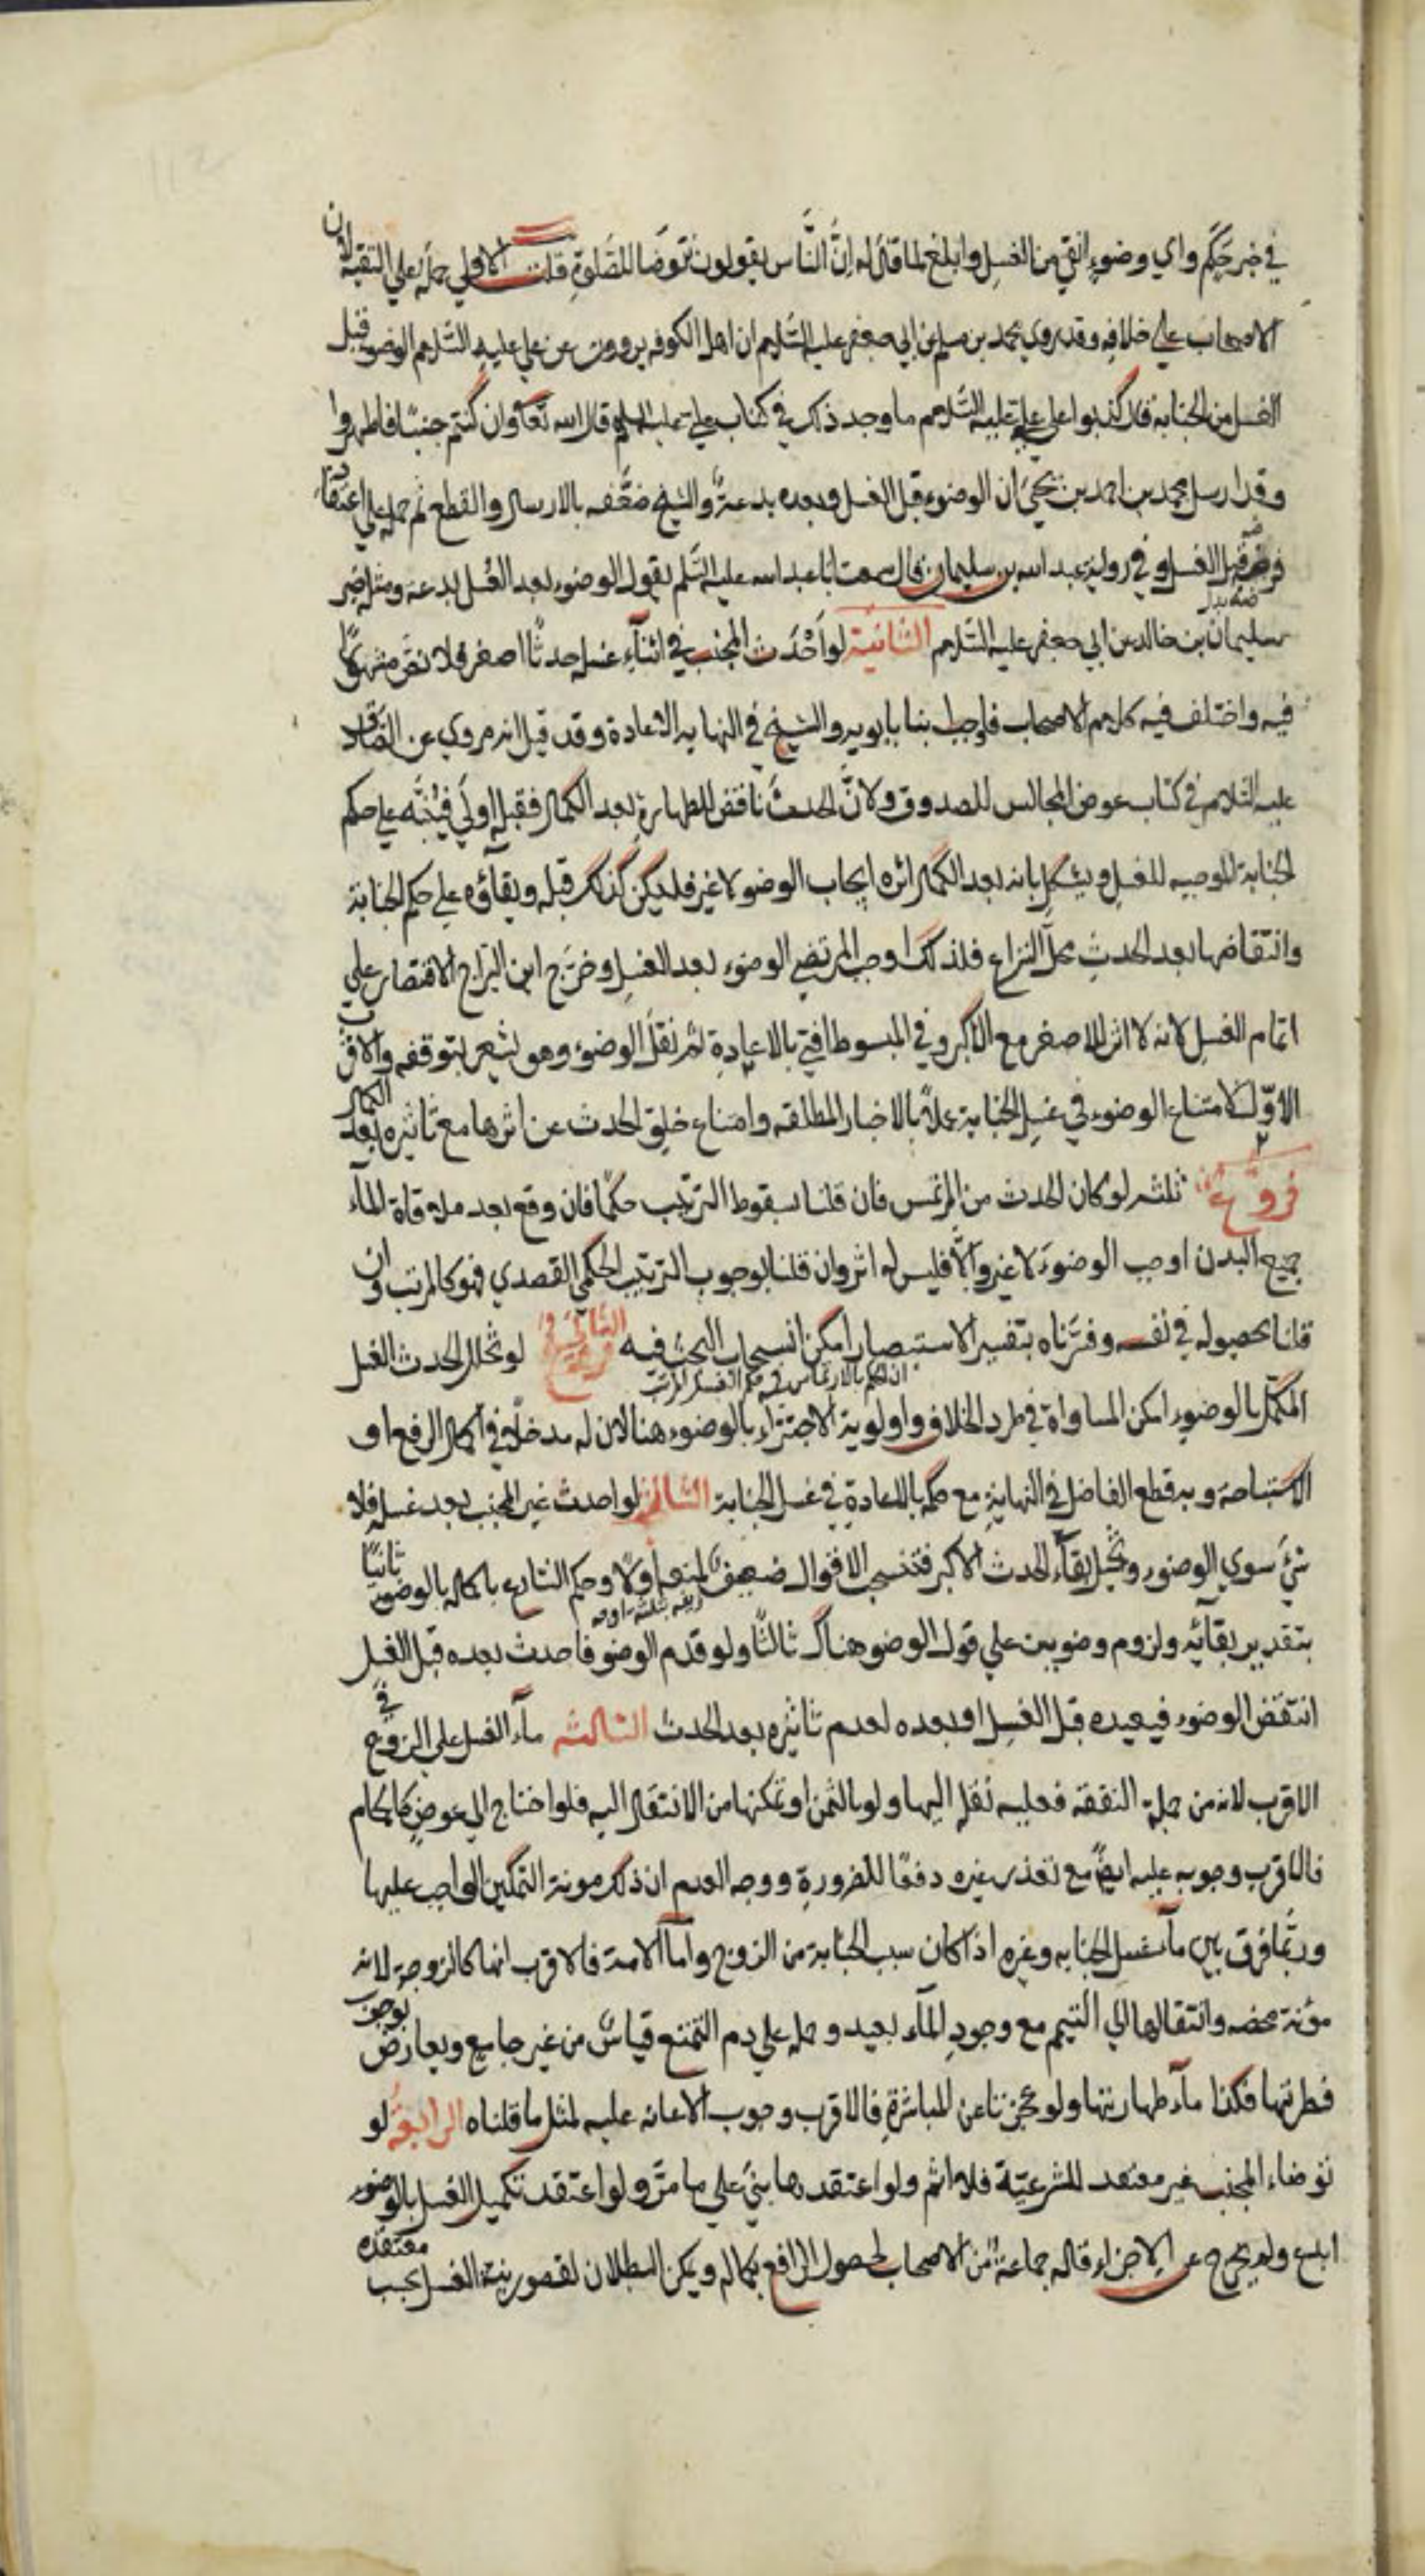 في خبر حكم واي وضوء انقى من الغسل وابلغ لما قال له ان الناس يقولون نتوضأ للصلوة قلت الاولى حمله على التقية لان
الاصحاب على خلافه وقد روى محمد بن مسلم عن ابي جعفر عليه السلام ان اهل الكوفه يروون عن علي عليه السلام الوضوء قبل
الغسل من الجنابة قال كذبوا على علي عليه السلام ما وجد ذلك في كتاب علي عليه السلم قال الله تعالى وان كنتم جنبًا فاطهروا
وقد ارسل محمد بن احمد بن يحيى ان الوضوء قبل الغسل وبعده بدعة والشيخ ضعفه بالارسال والقطع ثم حمله على اعتقاد
فرضه قبل الغسل وفي رواية عبد الله بن سليمان قال سمعت ابا عبد الله عليه السلم يقول الوضوء بعد الغسل بدعة ومثله خبر
سليمان بن خالد عن ابي جعفر عليه السلام الثانية لو احدث المجنب في اثناء غسله حدثًا اصغر فلا نص مشهورًا
فيه واختلف فيه كلام الاصحاب فاوجب ابنا بابويه والشيخ في النهايه الاعادة وقد قيل انه مروي عن الصادق
عليه السلام في كتاب عرض المجالس للصدوق ولان الحدث ناقض للطهارة بعد الكمال فقبله اولى فينبه على حكم
الجنابة الموجبه للغسل ويشكل بانه بعد الكمال اثره ايجاب الوضو لا غير فليكن كذلك قبله وبقاؤه على حكم الجنابة
وانتقاضها بعد الحدث محل النزاع فلذلك اوجب المرتضى الوضوء بعد الغسل وخرج ابن البراج الاقتصار على
اتمام الغسل لانه لا اثر للاصغر مع الاكبر وفي المبسوط افتى بالاعادة ثم نقل الوضوء وهو يشعر بتوقفه والاقرب
الاول لامتناع الوضوء في غسل الجنابة عملًا بالاخبار المطلقه وامتناع خلو الحدث عن اثرها مع تاثيره بعد الكمال
فروع ثلثه لو كان الحدث من المرتمس فان قلنا بسقوط الترتيب حكمًا فان وقع بعد ملاقاة الماء
جميع البدن اوجب الوضوء لا غير والا فليس له اثر وان قلنا بوجوب الترتيب الحكمي القصدي فهو كالمرتب وان
قلنا بحصوله في نفسه وفسرناه بتفسير الاستبصار امكن انسحاب البحث فيه الثاني لو تخلل الحدث الغسل
المكمل بالوضوء امكن المساواة في طرد الخلاف واولوية الاجتزاء بالوضوء هنا لان له مدخلًا في اكمال الرفع او
الاستباحة وبه قطع الفاضل في النهاية مع حكمه بالاعادة في غسل الجنابة الثالث لو احدث غير المجنب بعد غسله فلا
شئ سوى الوضوء وتخيل بقاء الحدث الاكبر فتنسحب الاقوال ضعيف لمنعه اولًا وحكم الشارع باكماله بالوضوء ثانيًا
بتقدير بقائه ولزوم وضويين على قول الوضو هناك ثالثًا ولو قدم الوضو فاحدث بعده قبل الغسل
انتقض الوضوء فيعيده قبل الغسل او بعده لعدم تاثيره بعد الحدث الثالثه ماء الغسل على الزوج في
الاقرب لانه من جملة النفقه فعليه نقله اليها ولو بالثمن او تمكنها من الانتقال اليه فلو احتاج الى عوض كالحمام
فالاقرب وجوبه عليه ايضًا مع تعذر غيره دفعًا للضرورة ووجه العدم ان ذلك مونة التمكين الواجب عليها
وربما فرق بين ماء غسل الجنابه وغيره اذا كان سبب الجنابة من الزوج واما الامة فالاقرب انها كالزوجة لانه
مؤنة محضه وانتقالها الى التيمم مع وجود الماء بعيد وحمله على دم التمتع قياس من غير جامع ويعارض بوجوب
فطرتها فكذا ماء طهارتها ولو عجزتا عن المباشرة فالاقرب وجوب الاعانه عليه لمثل ما قلناه الرابعة لو
توضاء المجنب غير معتقد للشرعية فلا اثم ولو اعتقدها بني على ما مر ولو اعتقد تكميل الغسل بالوضوء
ابدع ولم يخرج عن الاجزاء قاله جماعة من الاصحاب لحصول الرافع بكماله ويمكن البطلان لقصور نية الغسل بحسب معتقده